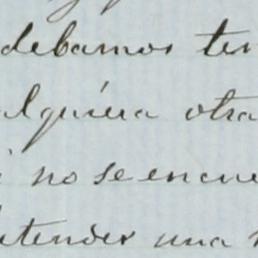 debamos ten
alquiera otra
i no se encue
etender una